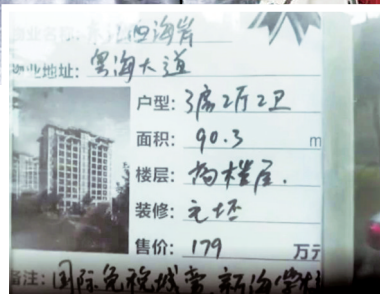 业名称: 海岸
物业地址: 粤海大道
户型: 3房2厅2卫
面积: 90.3 m
楼层: 高楼层.
装修: 毛坯
售价: 179 万元
备注: 国际免税城旁 新海学校